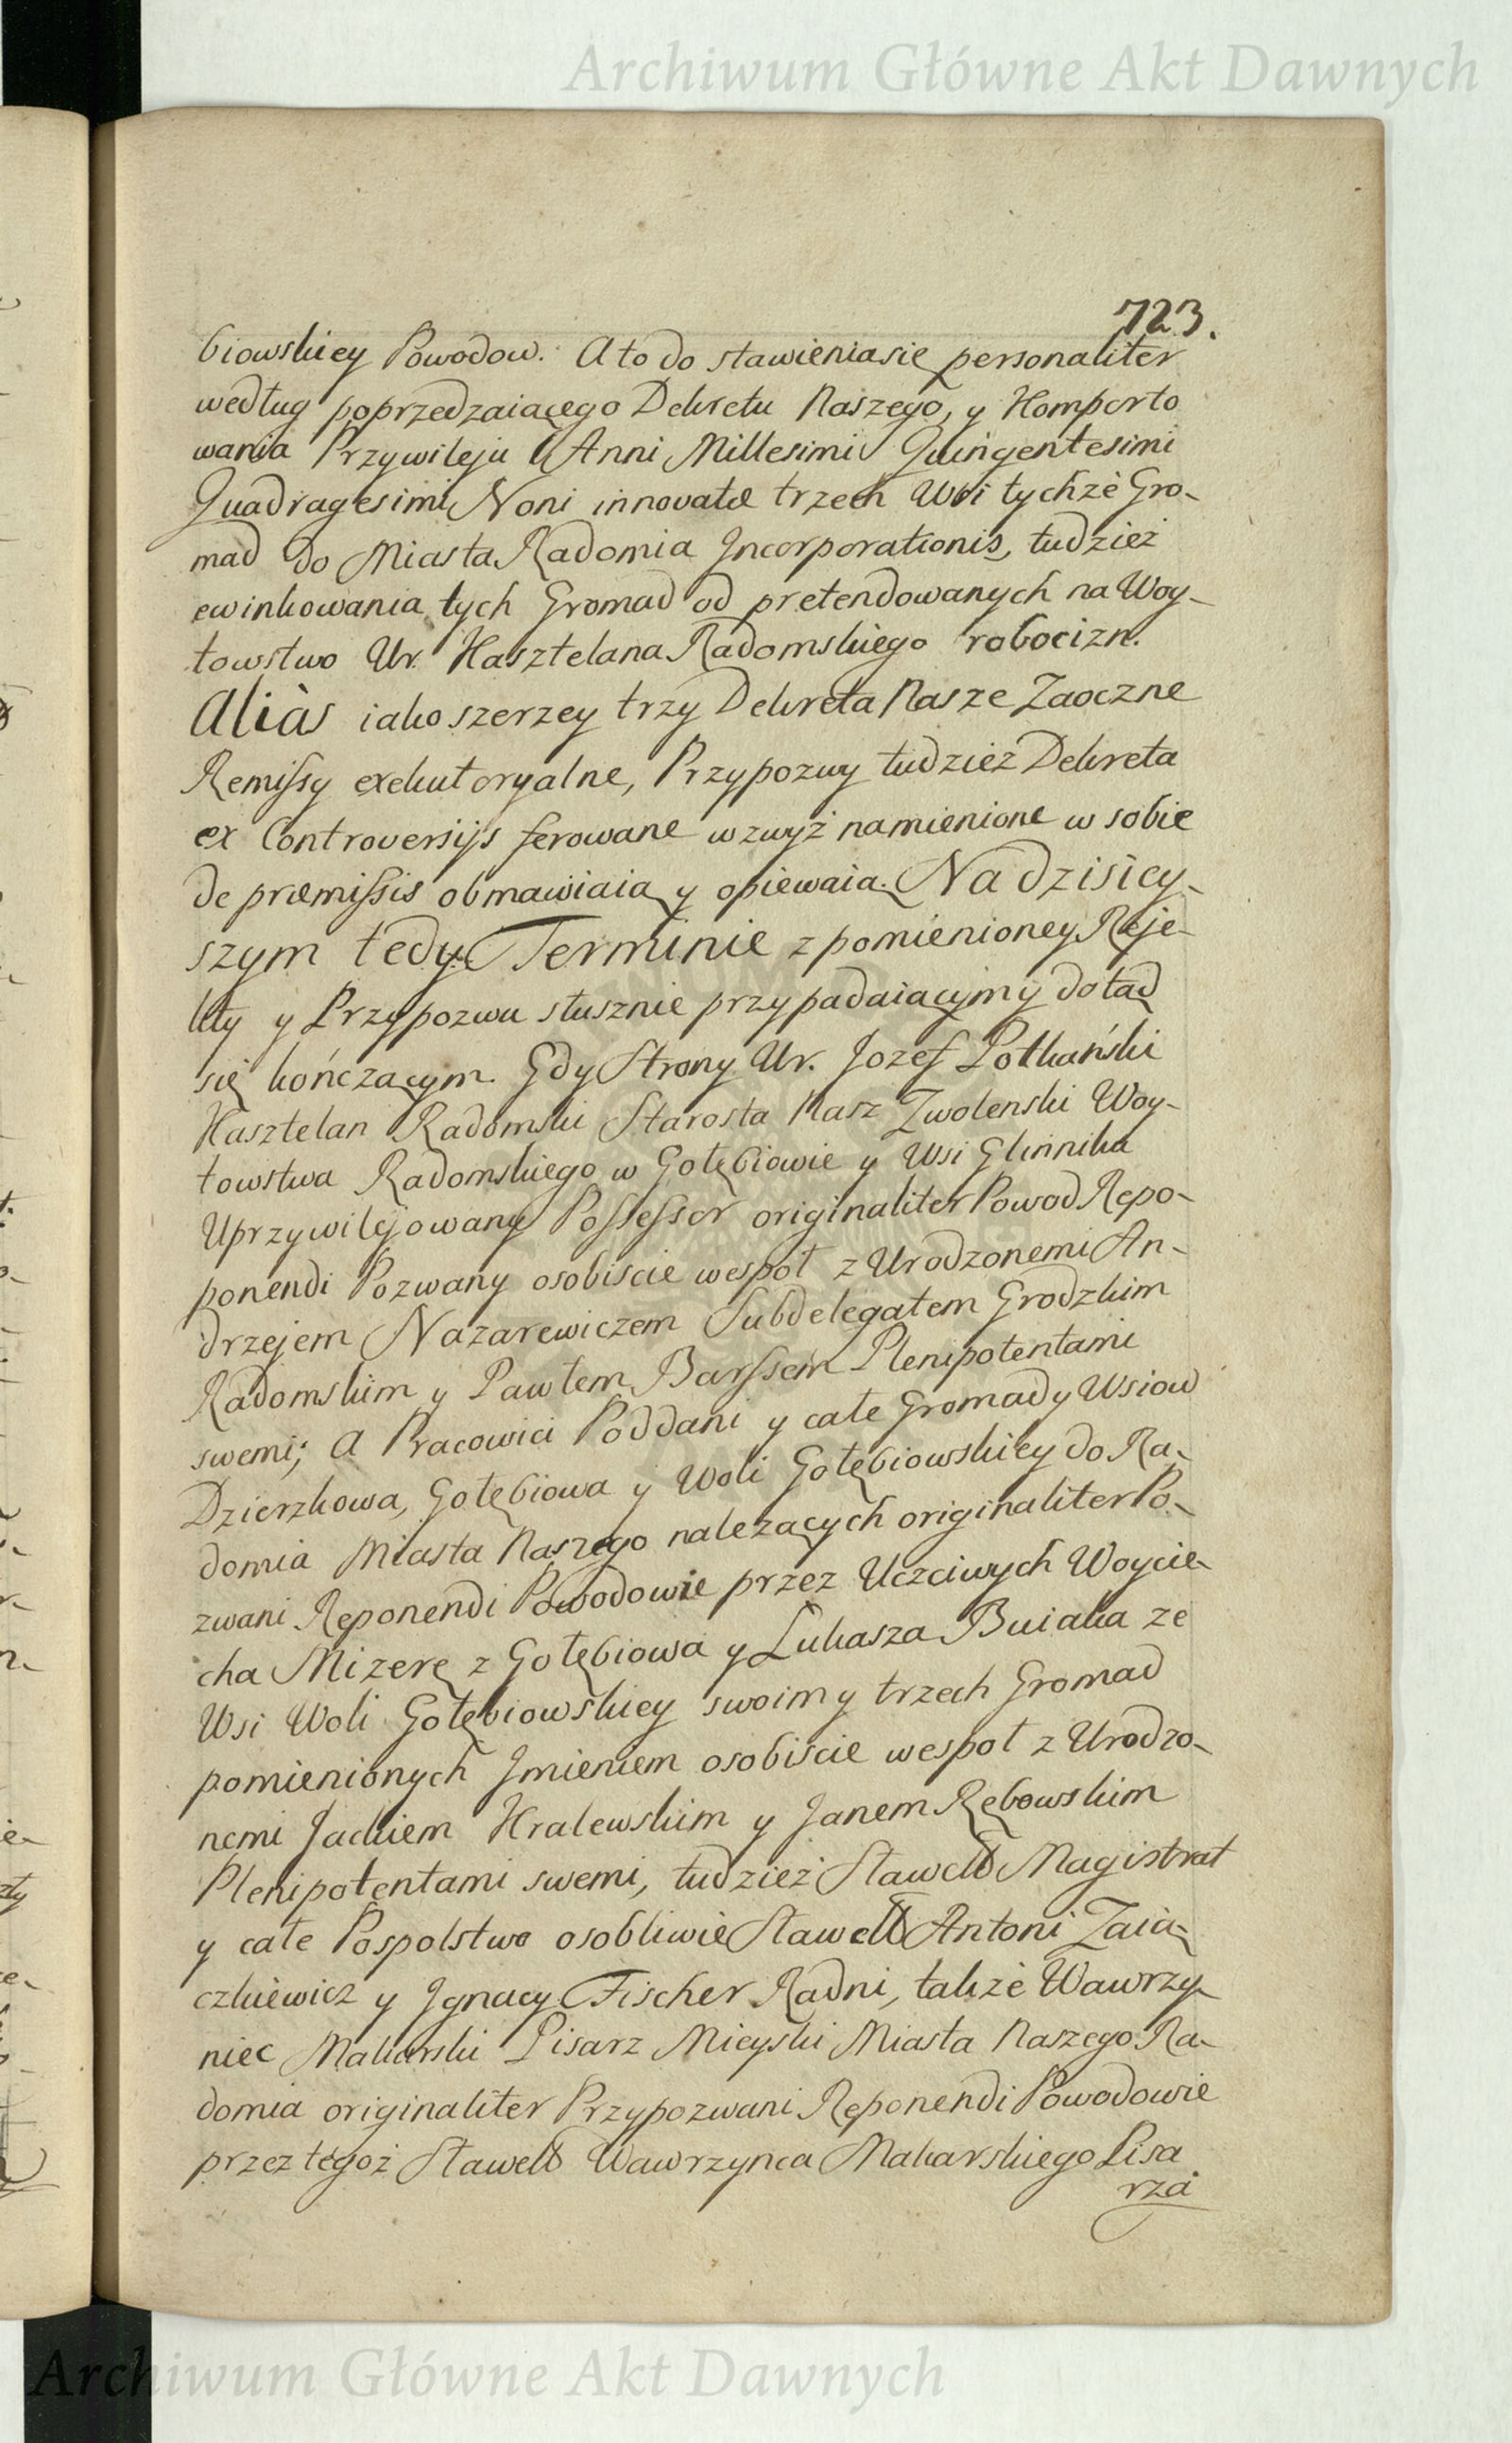 Archiwum Główne Akt Dawnych
723.
biowskiey Powodow. A to do stawienia się personaliter
według poprzedzaiącego Dekretu Naszego, y Komporto
wania Przywileju Anni Millesimi Quingentesimi
Quadragesimi Noni innovatæ trzech Wsi tychże Gro-
mad do Miasta Radomia Incorporationis, tudzież
ewinkowania tych Gromad od pretendowanych na Woy-
towstwo Ur. Kasztelana Radomskiego robocizn.
Aliàs iako szerzey trzy Dekreta Nasze Zaoczne
Remissy exekutoryalne, Przypozwy tudzież Dekreta
ex Controversijs ferowane wzwyż namienione w sobie
de præmissis obmawiaią y opiewaią. Na dzisiey-
szym tedy Terminie z pomienioney Reje-
kty y Przypozwu słusznie przypadaiącym y dotąd
się kończącym. Gdy Strony Ur. Jozef Potkański
Kasztelan Radomski Starosta Nasz Zwolenski Woy-
towstwa Radomskiego w Gołębiowie y Wsi Glinnika
Uprzywilejowany Possessor originaliter Powod Repo-
ponendi Pozwany osobiscie wespoł z Urodzonemi An-
drzejem Nazarewiczem Subdelegatem Grodzkim
Radomskim y Pawłem Barssem Plenipotentami
swemi; A Pracowici Poddani y całe Gromady Wsiow
Dzierzkowa, Gołębiowa y Woli Gołębiowskiey do Ra-
domia Miasta Naszego nalezących originaliter Po-
zwani Reponendi Powodowie przez Uczciwych Woycie-
cha Mizerę z Gołębiowa y Łukasza Buiaka ze
Wsi Woli Gołębiowskiey swoim y trzech Gromad
pomienionych Jmieniem osobiscie wespoł z Urodzo-
nemi Jackiem Kralewskim y Janem Rębowskim
Plenipotentami swemi, tudzież Sławetd Magistrat
y całe Pospolstwo osobliwie Sławetd Antoni Zaią-
czkiewicz y Ignacy Fischer Radni, także Wawrzy-
niec Makarski Pisarz Mieyski Miasta Naszego Ra-
domia originaliter Przypozwani Reponendi Powodowie
przez tegoż Sławetd Wawrzynca Makarskiego Pisa
rza
Archiwum Główne Akt Dawnych